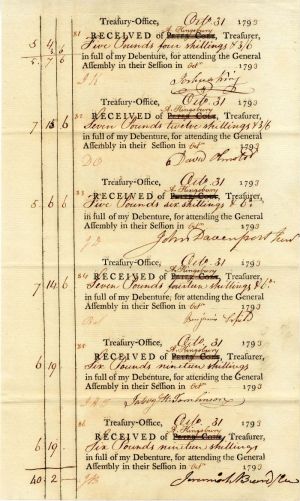 Treasury-Office, Octo. 31 1793
81 A. Kingsbury
RECEIVED of Peter Colt, Treasurer,
5 4 Five Pounds four shillings & 3/6
3 6
in full of my Debenture, for attending the General
5 7 6
Assembly in their Session in Octr 1793
Joshua King
Treasury-Office, Octo. 31 1793
82 A. Kingsbury
RECEIVED of Peter Colt, Treasurer,
Seven Pounds twelve shillings & 3/6
7 15 6
in full of my Debenture, for attending the General
Assembly in their Session in Octr 1793
David Olmsted
Treasury-Office, Octo. 31 1793
83 A. Kingsbury
RECEIVED of Peter Colt, Treasurer,
5 6 6 Five Pounds six shillings & 6d
in full of my Debenture, for attending the General
Assembly in their Session in Octr 1793
John Davenport Junr
Treasury-Office, Octo. 31 1793
84 A. Kingsbury
RECEIVED of Peter Colt, Treasurer,
7 14 6 Seven Pounds fourteen shillings & 6d
in full of my Debenture, for attending the General
Assembly in their Session in Octr 1793
Benjamin
Treasury-Office, Octo. 31 1793
85 A. Kingsbury
RECEIVED of Peter Colt, Treasurer,
6 19 Six Pounds nineteen shillings
in full of my Debenture, for attending the General
Assembly in their Session in Octr 1793
Tomlinson
Treasury-Office, Octo. 31 1793
86 A. Kingsbury
RECEIVED of Peter Colt, Treasurer,
6 19 Six Pounds nineteen shillings
in full of my Debenture, for attending the General
40 2 Assembly in their Session in Octr 1793